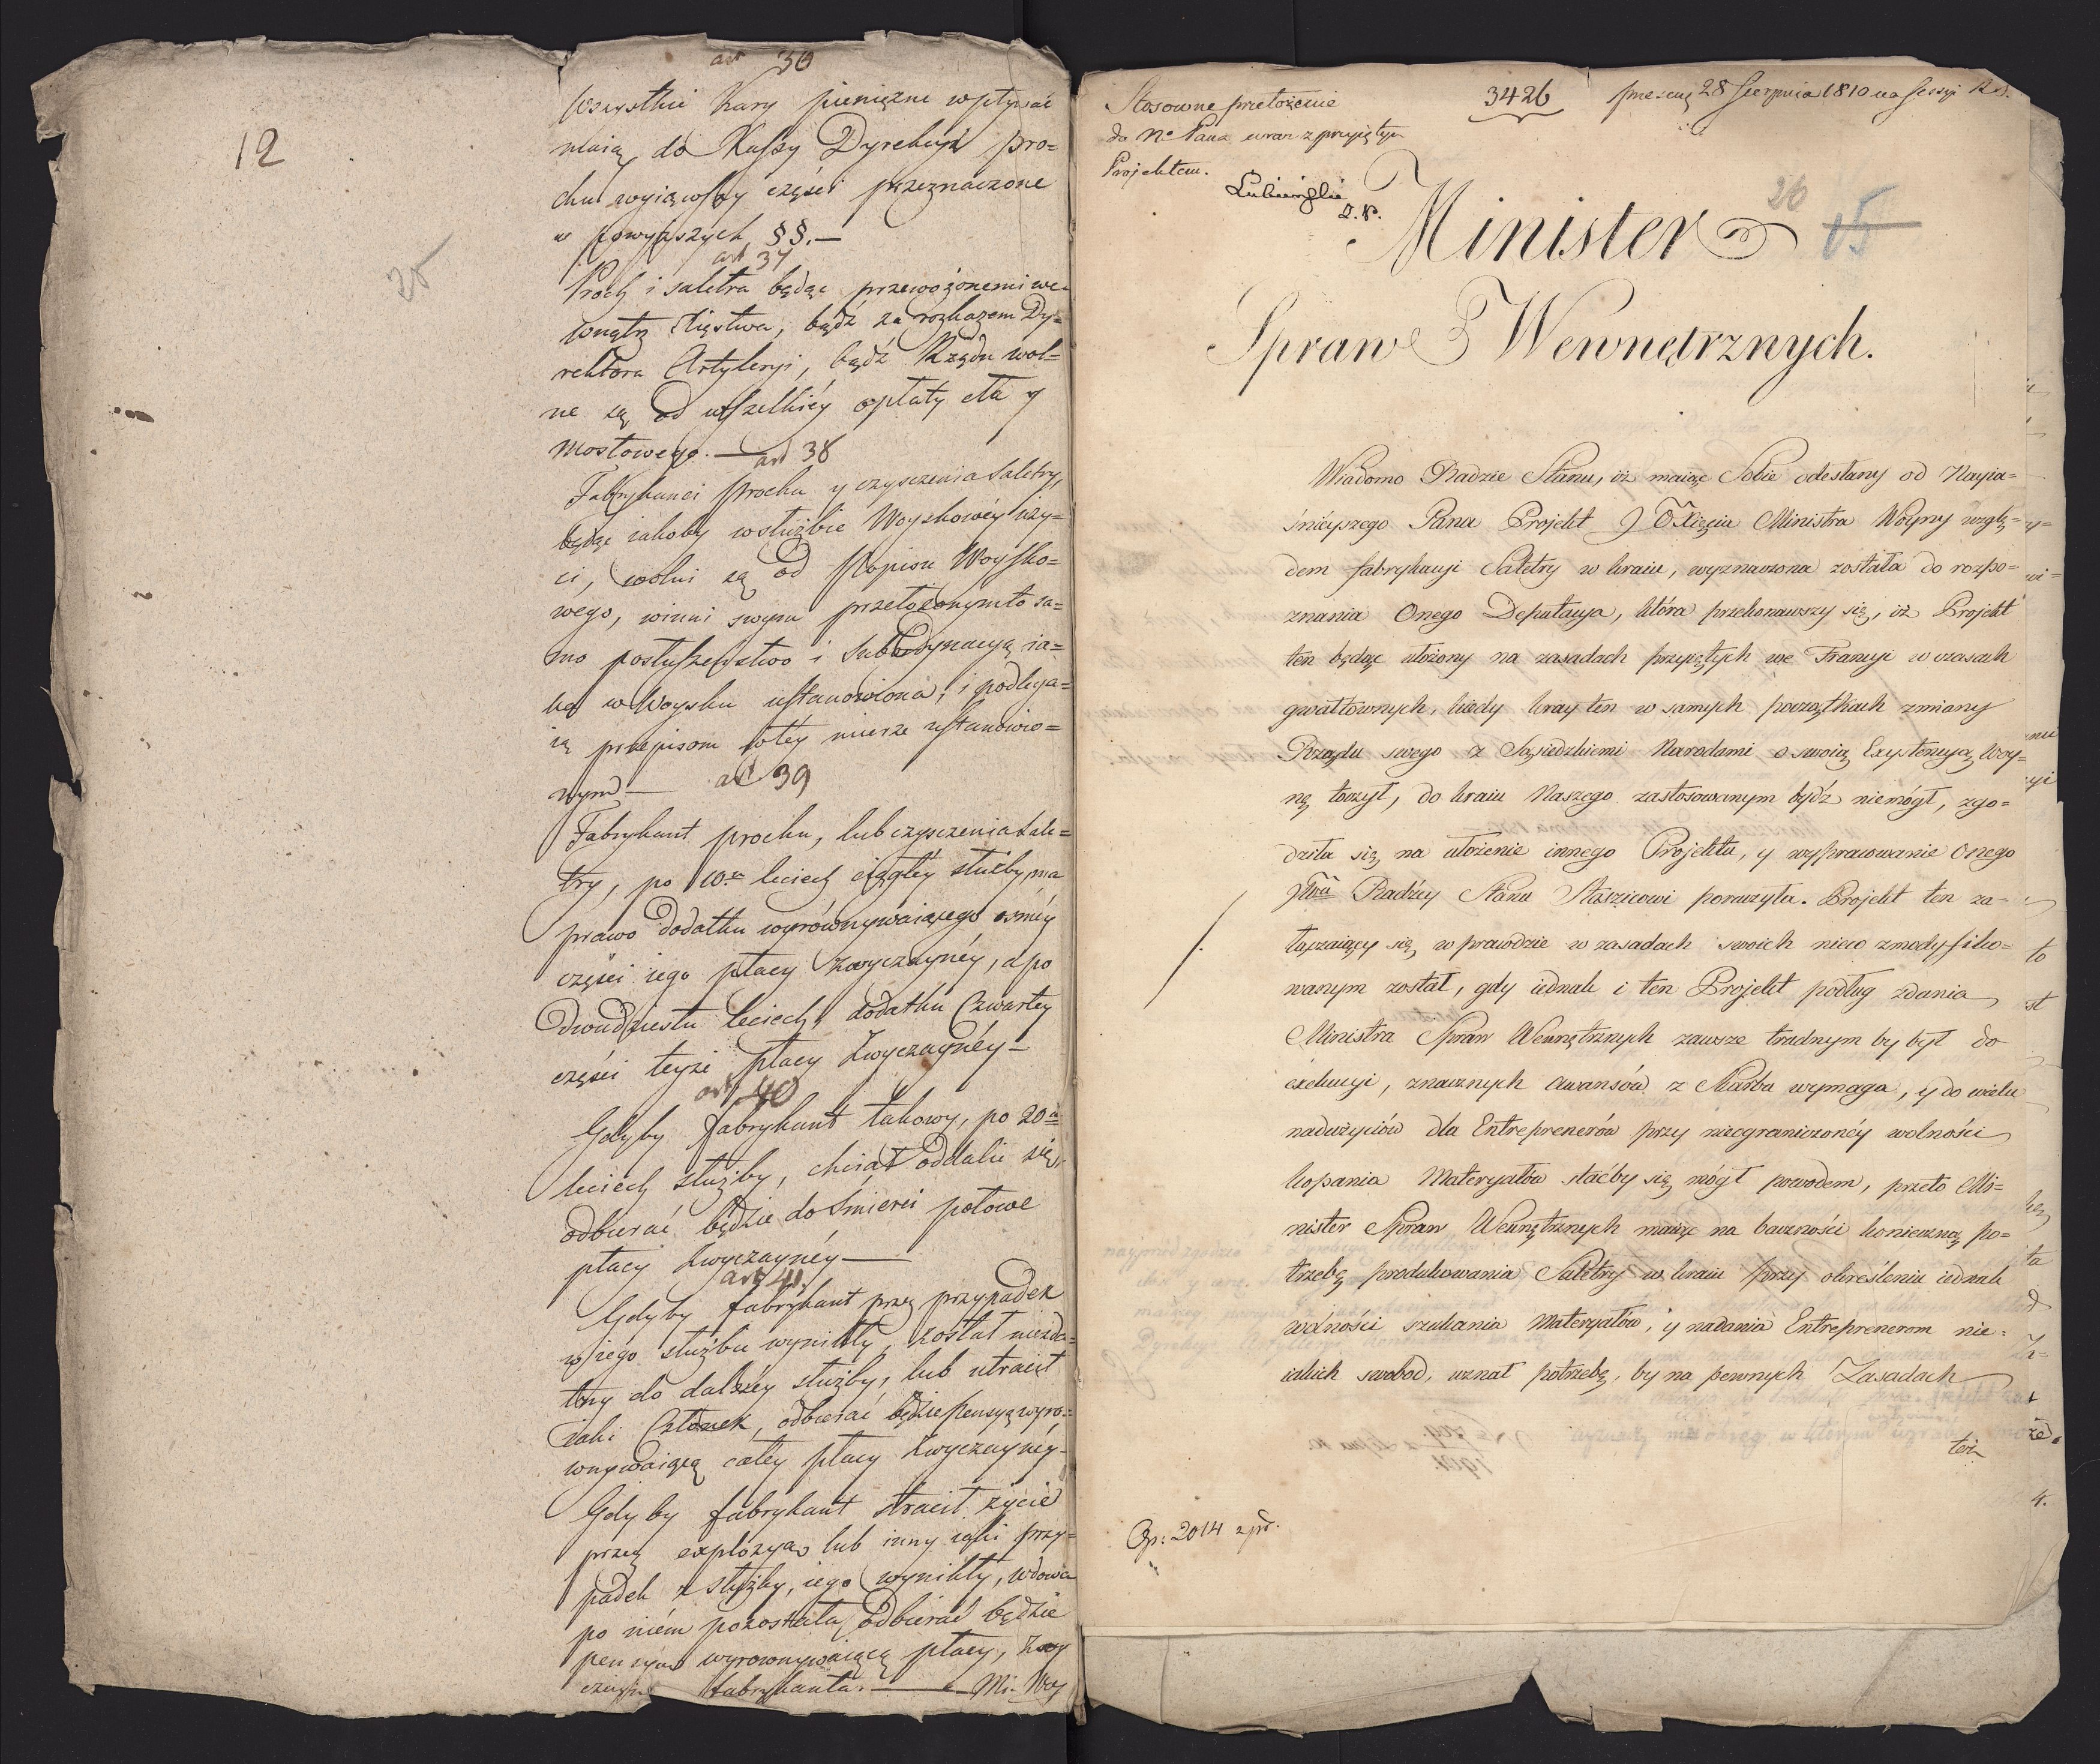 12
25
art 36
Wszystkie Kary pieniężne wpływać
maią do Kassy Dyrekcyi pro=
chu wyiąwszy części przeznaczone
w powyższych §§.—
art 37
Proch i saletra będąc przewożonemi we=
wnątrz Xięstwa, bądź za rozkazem Dy=
rektora Artyleryi, bądź Rządu wol=
ne są od wszelkiéy opłaty cła y
mostowego.—
art 38
Fabrykanci prochu y czyszczenia Saletry,
będąc iakoby w służbie Woyskowéy uży=
ci, wolni są od Popisu Woysko=
wego, winni swym przełożonym to sa=
mo posłuszeństwo i Subordynacyą ia=
ka w Woysku ustanowiona, i podlega=
ią przepisom w téy mierze ustanowio=
nym—
art 39
Fabrykant prochu, lub czyszczenia Sale=
try, po 10.u leciech ciągłéy służby, ma
prawo dodatku wyrównywaiącego ósméy
części iego płacy zwyczaynéy, a po
Dwudziestu leciech, dodatku Czwartey
części teyże płacy Zwyczaynéy—
art 40
Gdyby fabrykant takowy, po 20u
leciech służby, chciał oddalić się,
odbierać będzie do śmierci połowę
płacy Zwyczaynéy—
art 41.
Gdyby fabrykant przez przypadek
w iego służbie wynikły, został niezda=
tny do dalszey służby, lub utracił
iaki Członek, odbierać będzie pensyą wyró=
wnywaiącą całey płacy Zwyczaynéy—
Gdyby fabrykant stracił życie
przez explozyą lub inny iaki przy=
padek z służby, iego wynikły, wdowa
po niém pozostała, odbierać będzie
pensyą wyrównywaiącą płacy, Zwy
czayney fabrykanta.— Mi. Woy
Stosowne przełożenie
do No Pana wraz z przyiętym
Projektem.
Lubieński
3426
28 Sierpnia 1810 na Sessyi R.S.
26
15
Minister
Spraw Wewnętrznych.
Wiadomo Radzie Stanu, iż maiąc Sobie odesłany od Nayia=
śnieyszego Pana Projekt JO Xięcia Ministra Woyny wzglę=
dem fabrykacyi Saletry w kraiu, wyznaczona została do rozpo=
znania Onego Deputacya, która przekonawszy się, iż Projekt
ten będąc ułożony na zasadach przyiętych we Francyi w czasach
gwałtownych, kiedy kray ten w samych początkach zmiany
Rządu swego z Sąsiedzkiemi Narodami o swoią Exystencyą Woy=
nę toczył, do kraiu Naszego zastosowanym bydź niemógł, zgo=
dziła się na ułożenie innego Projektu, y wypracowanie Onego
JWu Radzcy Stanu Staszicowi poruczyła. Projekt ten za=
łączaiący się w prawdzie w zasadach swoich nieco zmodyfiko=
wanym został, gdy iednak i ten Projekt podług zdania
Ministra Spraw Wewnętrznych zawsze trudnym by był do
exekucyi, znacznych awansów z Skarbu wymaga, y do wielu
nadużyciów dla Entreprenerów przy nieograniczonéy wolności
kopania Materyałów staćby się mógł powodem, przeto Mi=
nister Spraw Wewnętrznych maiąc na baczności konieczną po=
trzebę produkowania Saletry w kraiu przy określeniu iednak
wolności szukania Materyałów, y nadania Entreprenerom nie=
iakich swobod, uznał potrzebę, by na pewnych Zasadach
też
Exp: 2014